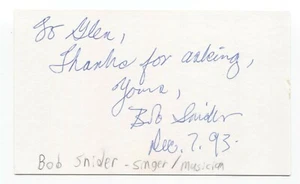 To Glen,
Thanks for asking,
Yours,
Bob Snider
Dec. 7. 93.
Bob Snider - singer/musician